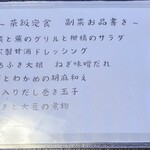 ~ 菜飯定食 副菜お品書き ~
菜と蕪のグリルと柑橘のサラダ
製甘酒ドレッシング
ふき大根 ねぎ味噌だれ
とわかめの胡麻和え
入りだし巻き玉子
と大豆の煮物